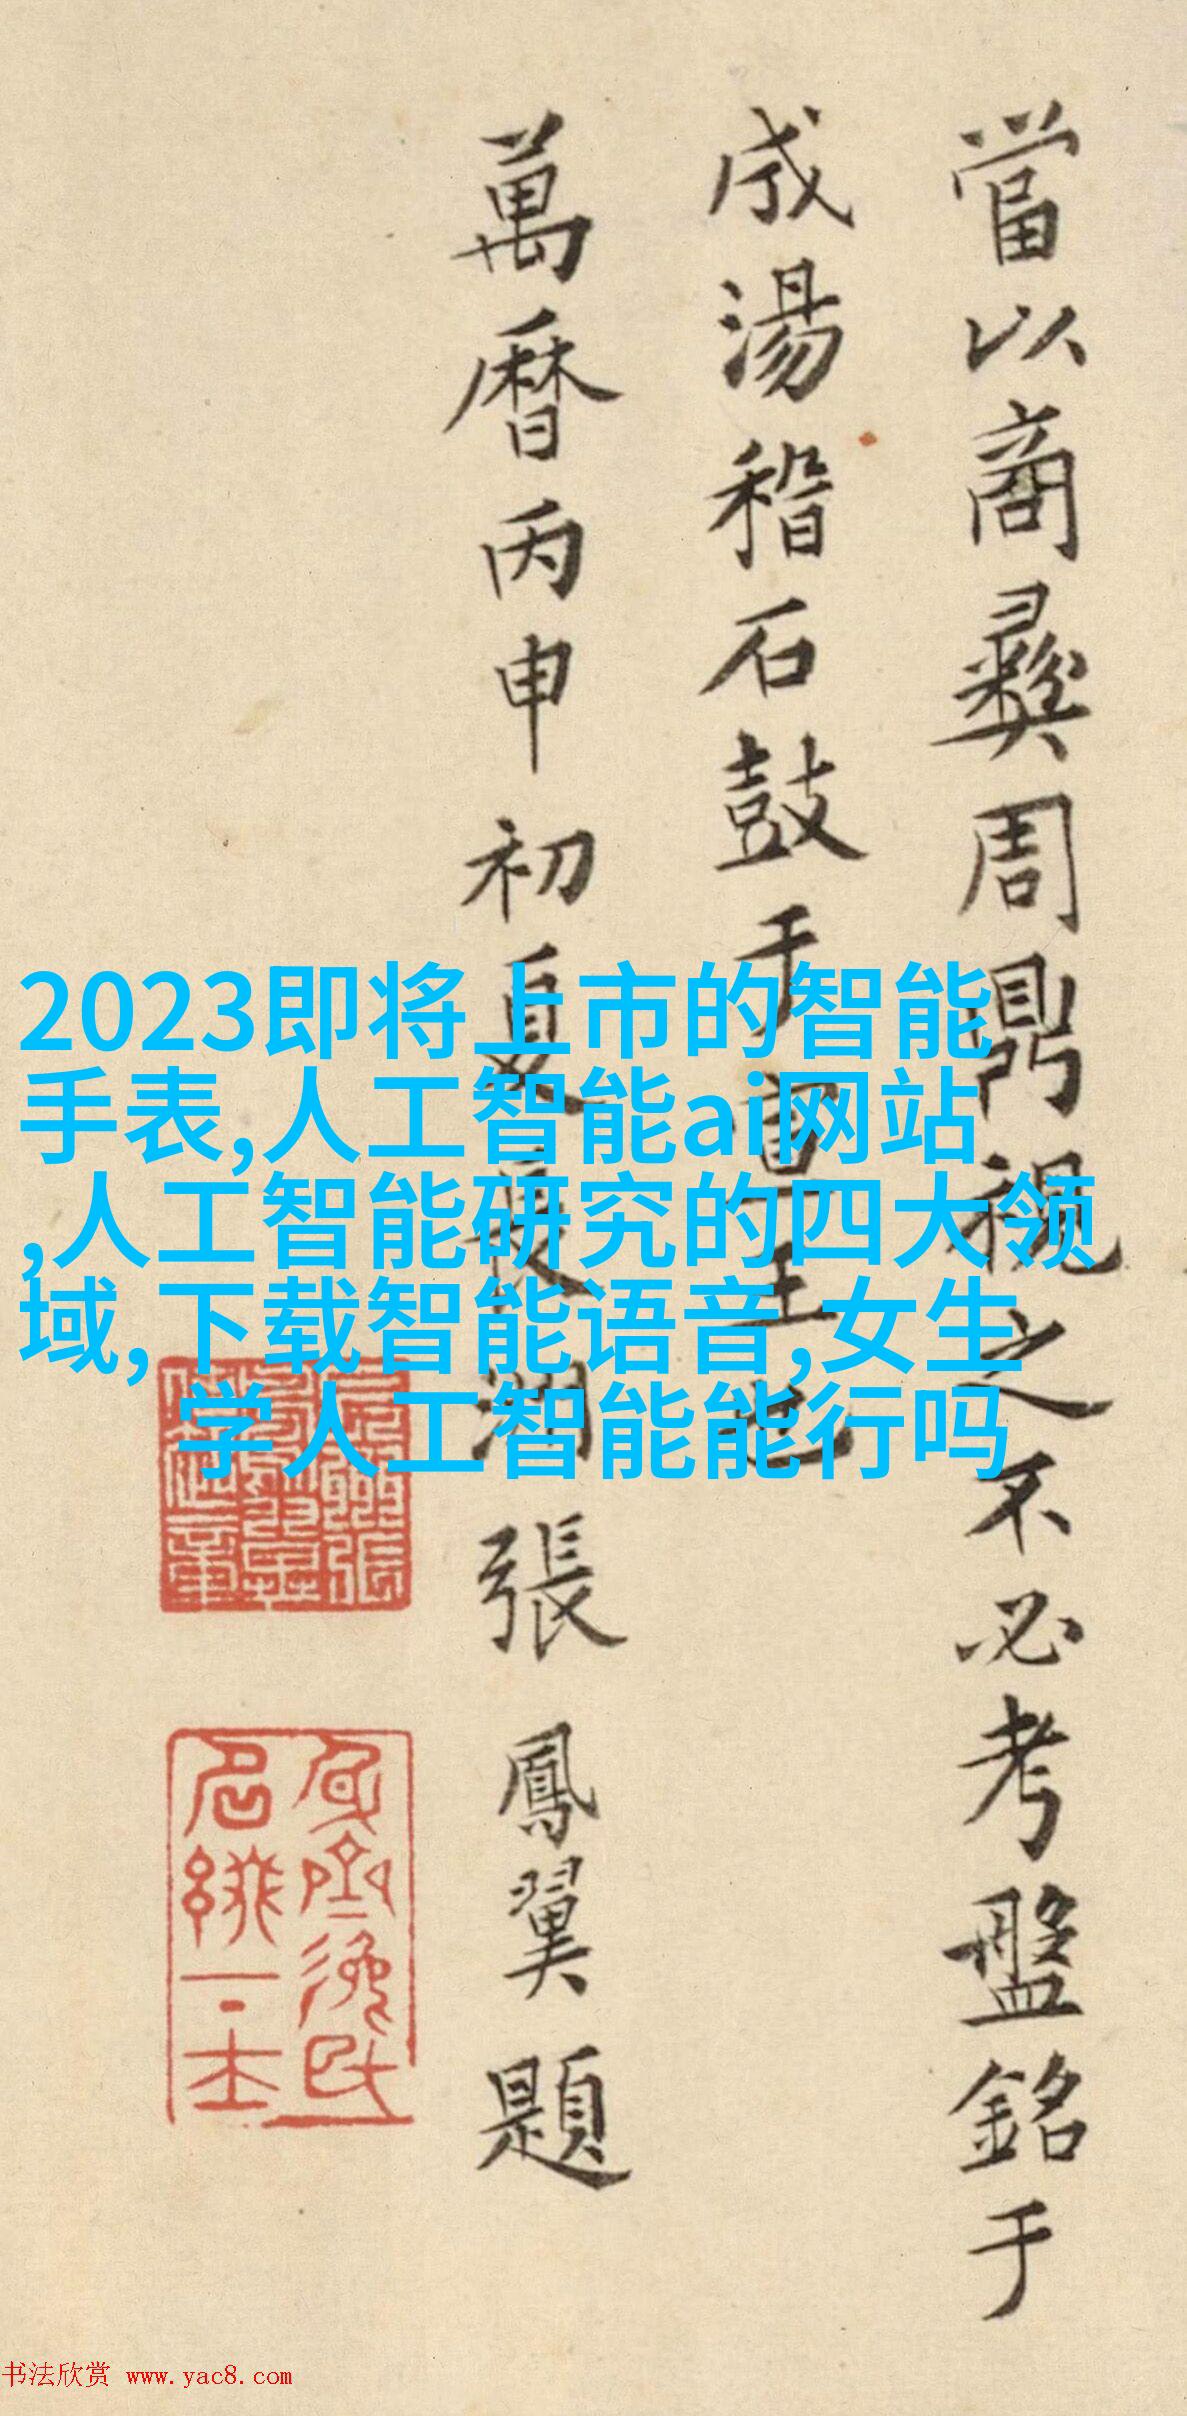 當以商彝周鼎視之不必考盤銘于
成湯稽石鼓于宣王也
萬曆丙申初夏長洲張鳳翼題
2023即将上市的智能
手表,人工智能ai网站
,人工智能研究的四大领
域,下载智能语音,女生
学人工智能能行吗
书法欣赏 www.yac8.com